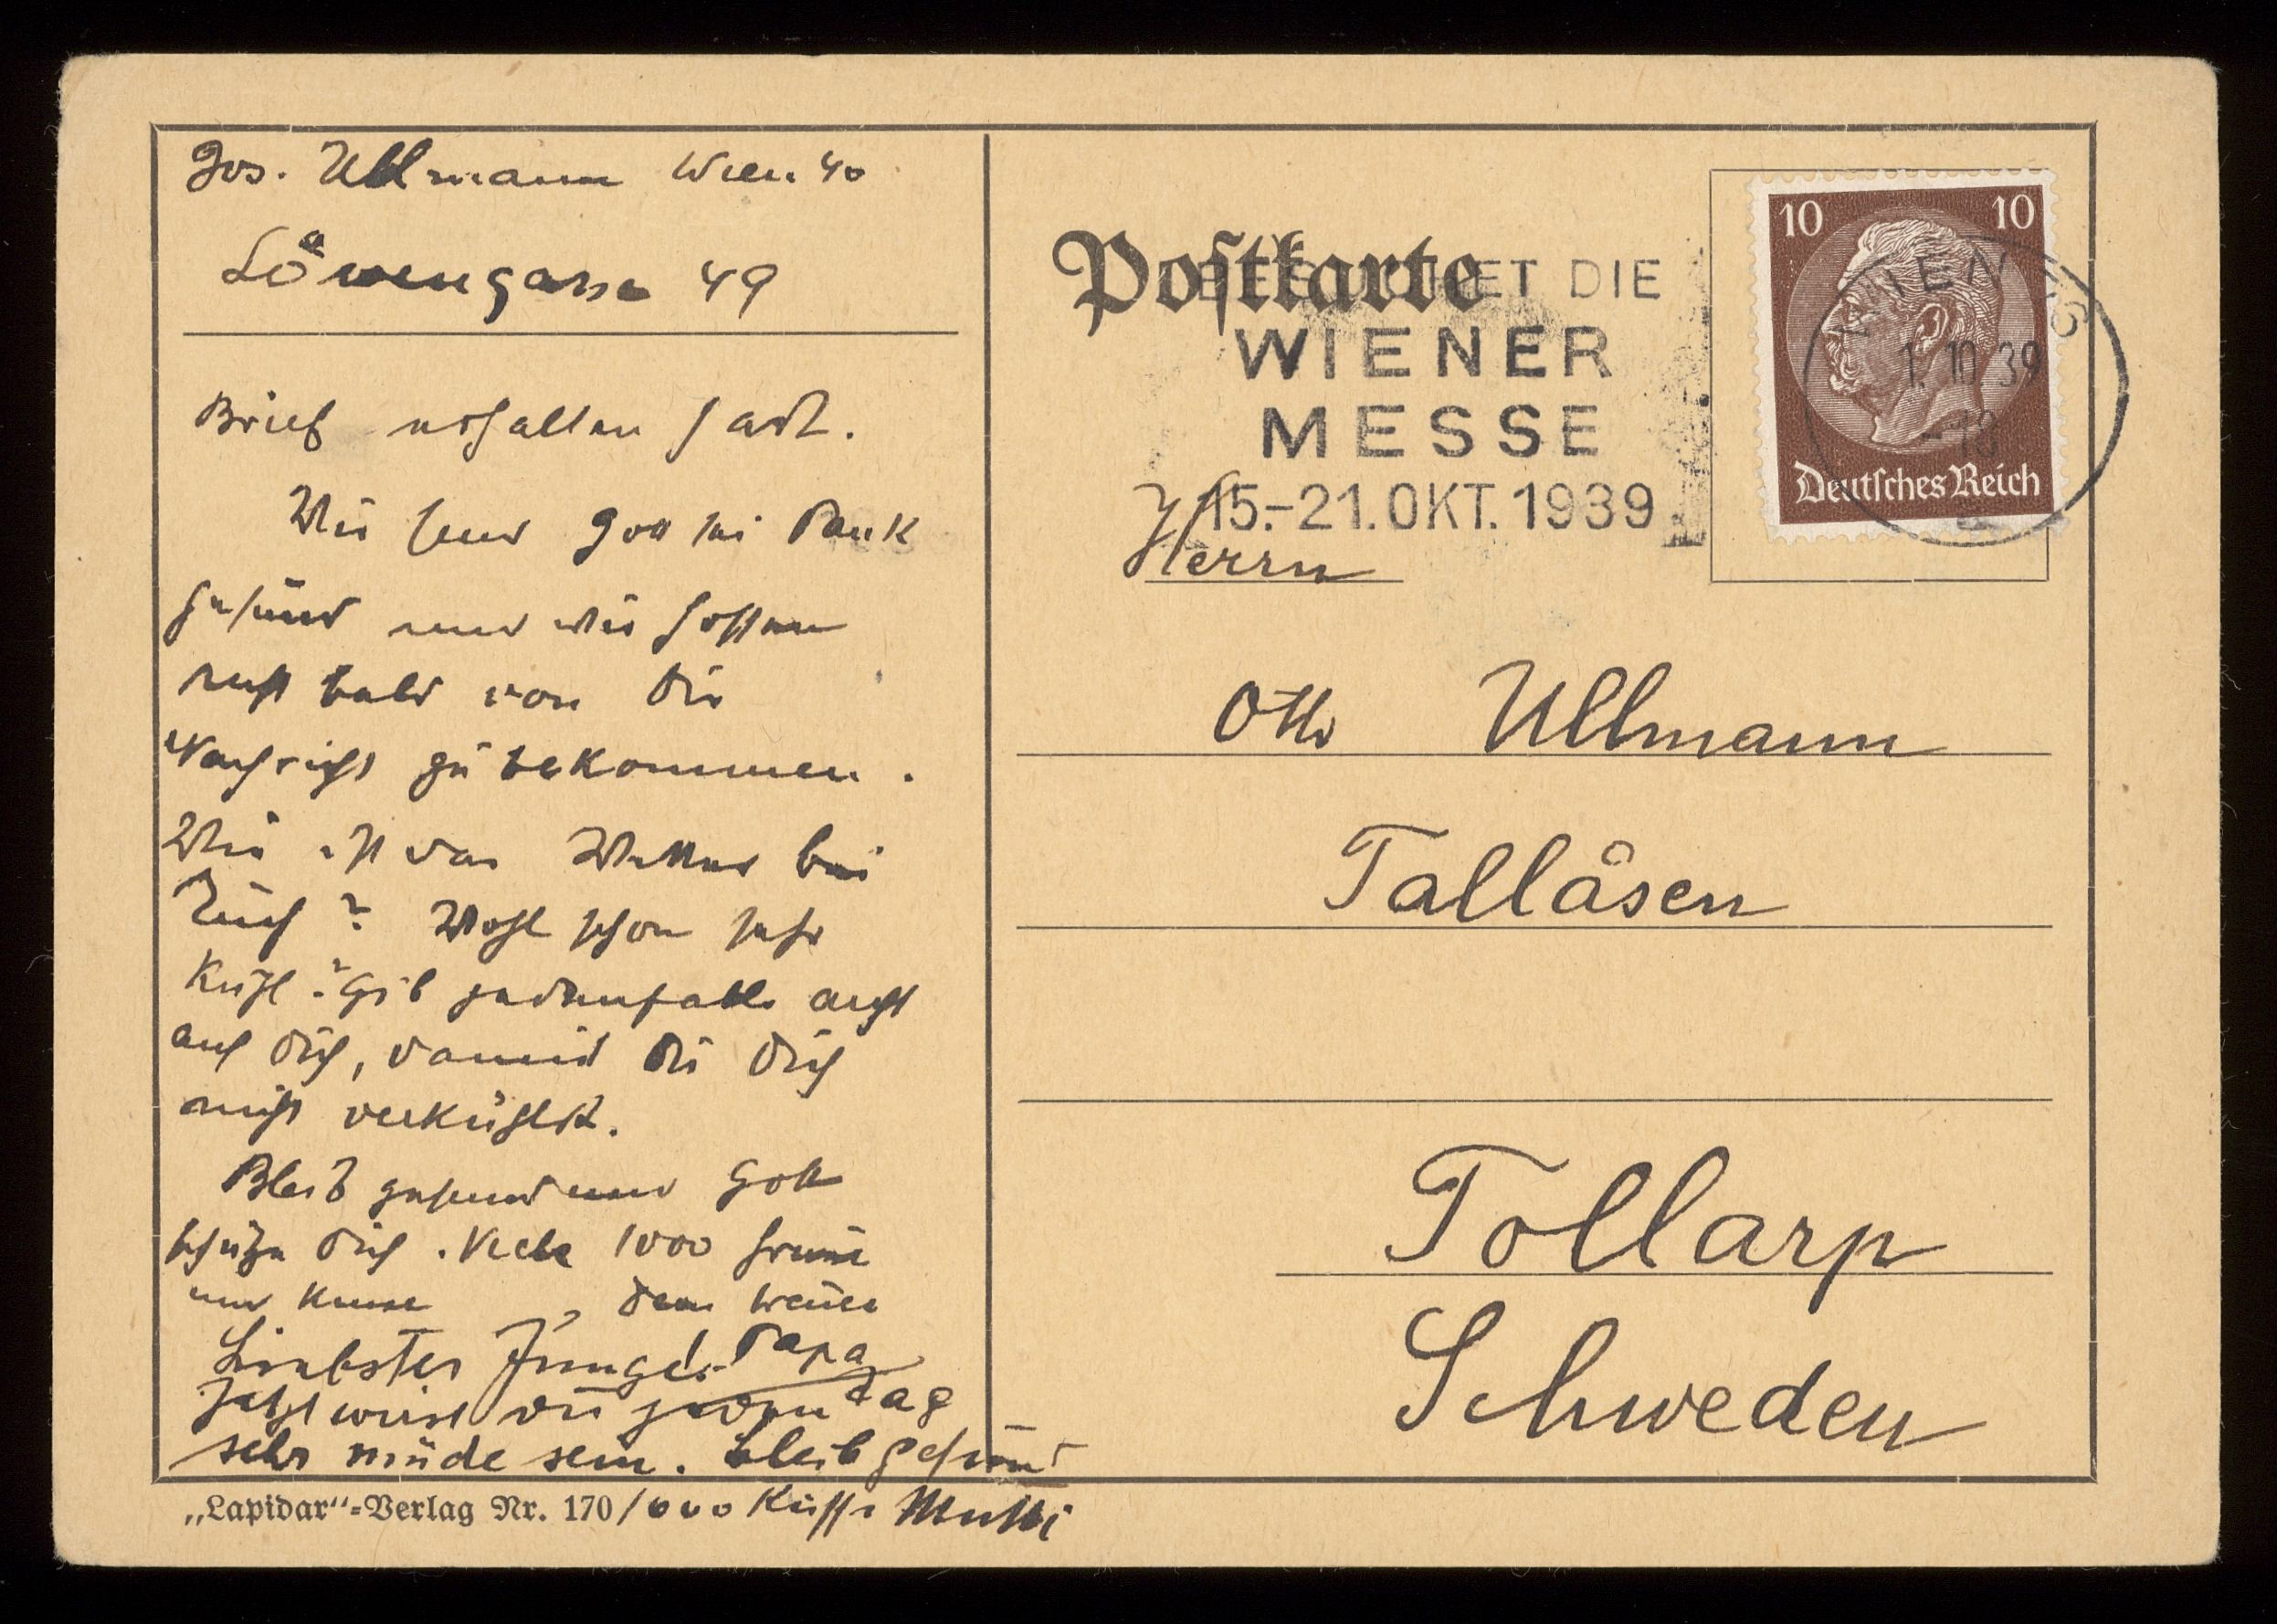 Jos. Ullmann Wien 40
Löwengasse 49
Brief erhalten hast.
Wir sind Gott sei Dank
gesund und wir hoffen
recht bald von Dir
Nachricht zu bekommen.
Wie ist das Wetter bei
Euch? Wohl schon sehr
kühl? Gib jedenfalls acht
auf Dich, damit Du Dich
nicht verkühlst.
Bleib gesund und Gott
schütze Dich. Viele 1000 Grüsse
und Küsse, Dein treuer
Papa
Liebster Junge!
Jetzt wirst du jeden Tag
sehr müde sein. bleib gesund
1000 Küsse Mutti
„Lapidar"-Verlag Nr. 170
Postkarte
ET DIE
WIENER
MESSE
15.-21.OKT.1939
10 10
Deutsches Reich
WIEN
1.10.39
Herrn
Otto Ullmann
Tallåsen
Tollarp
Schweden